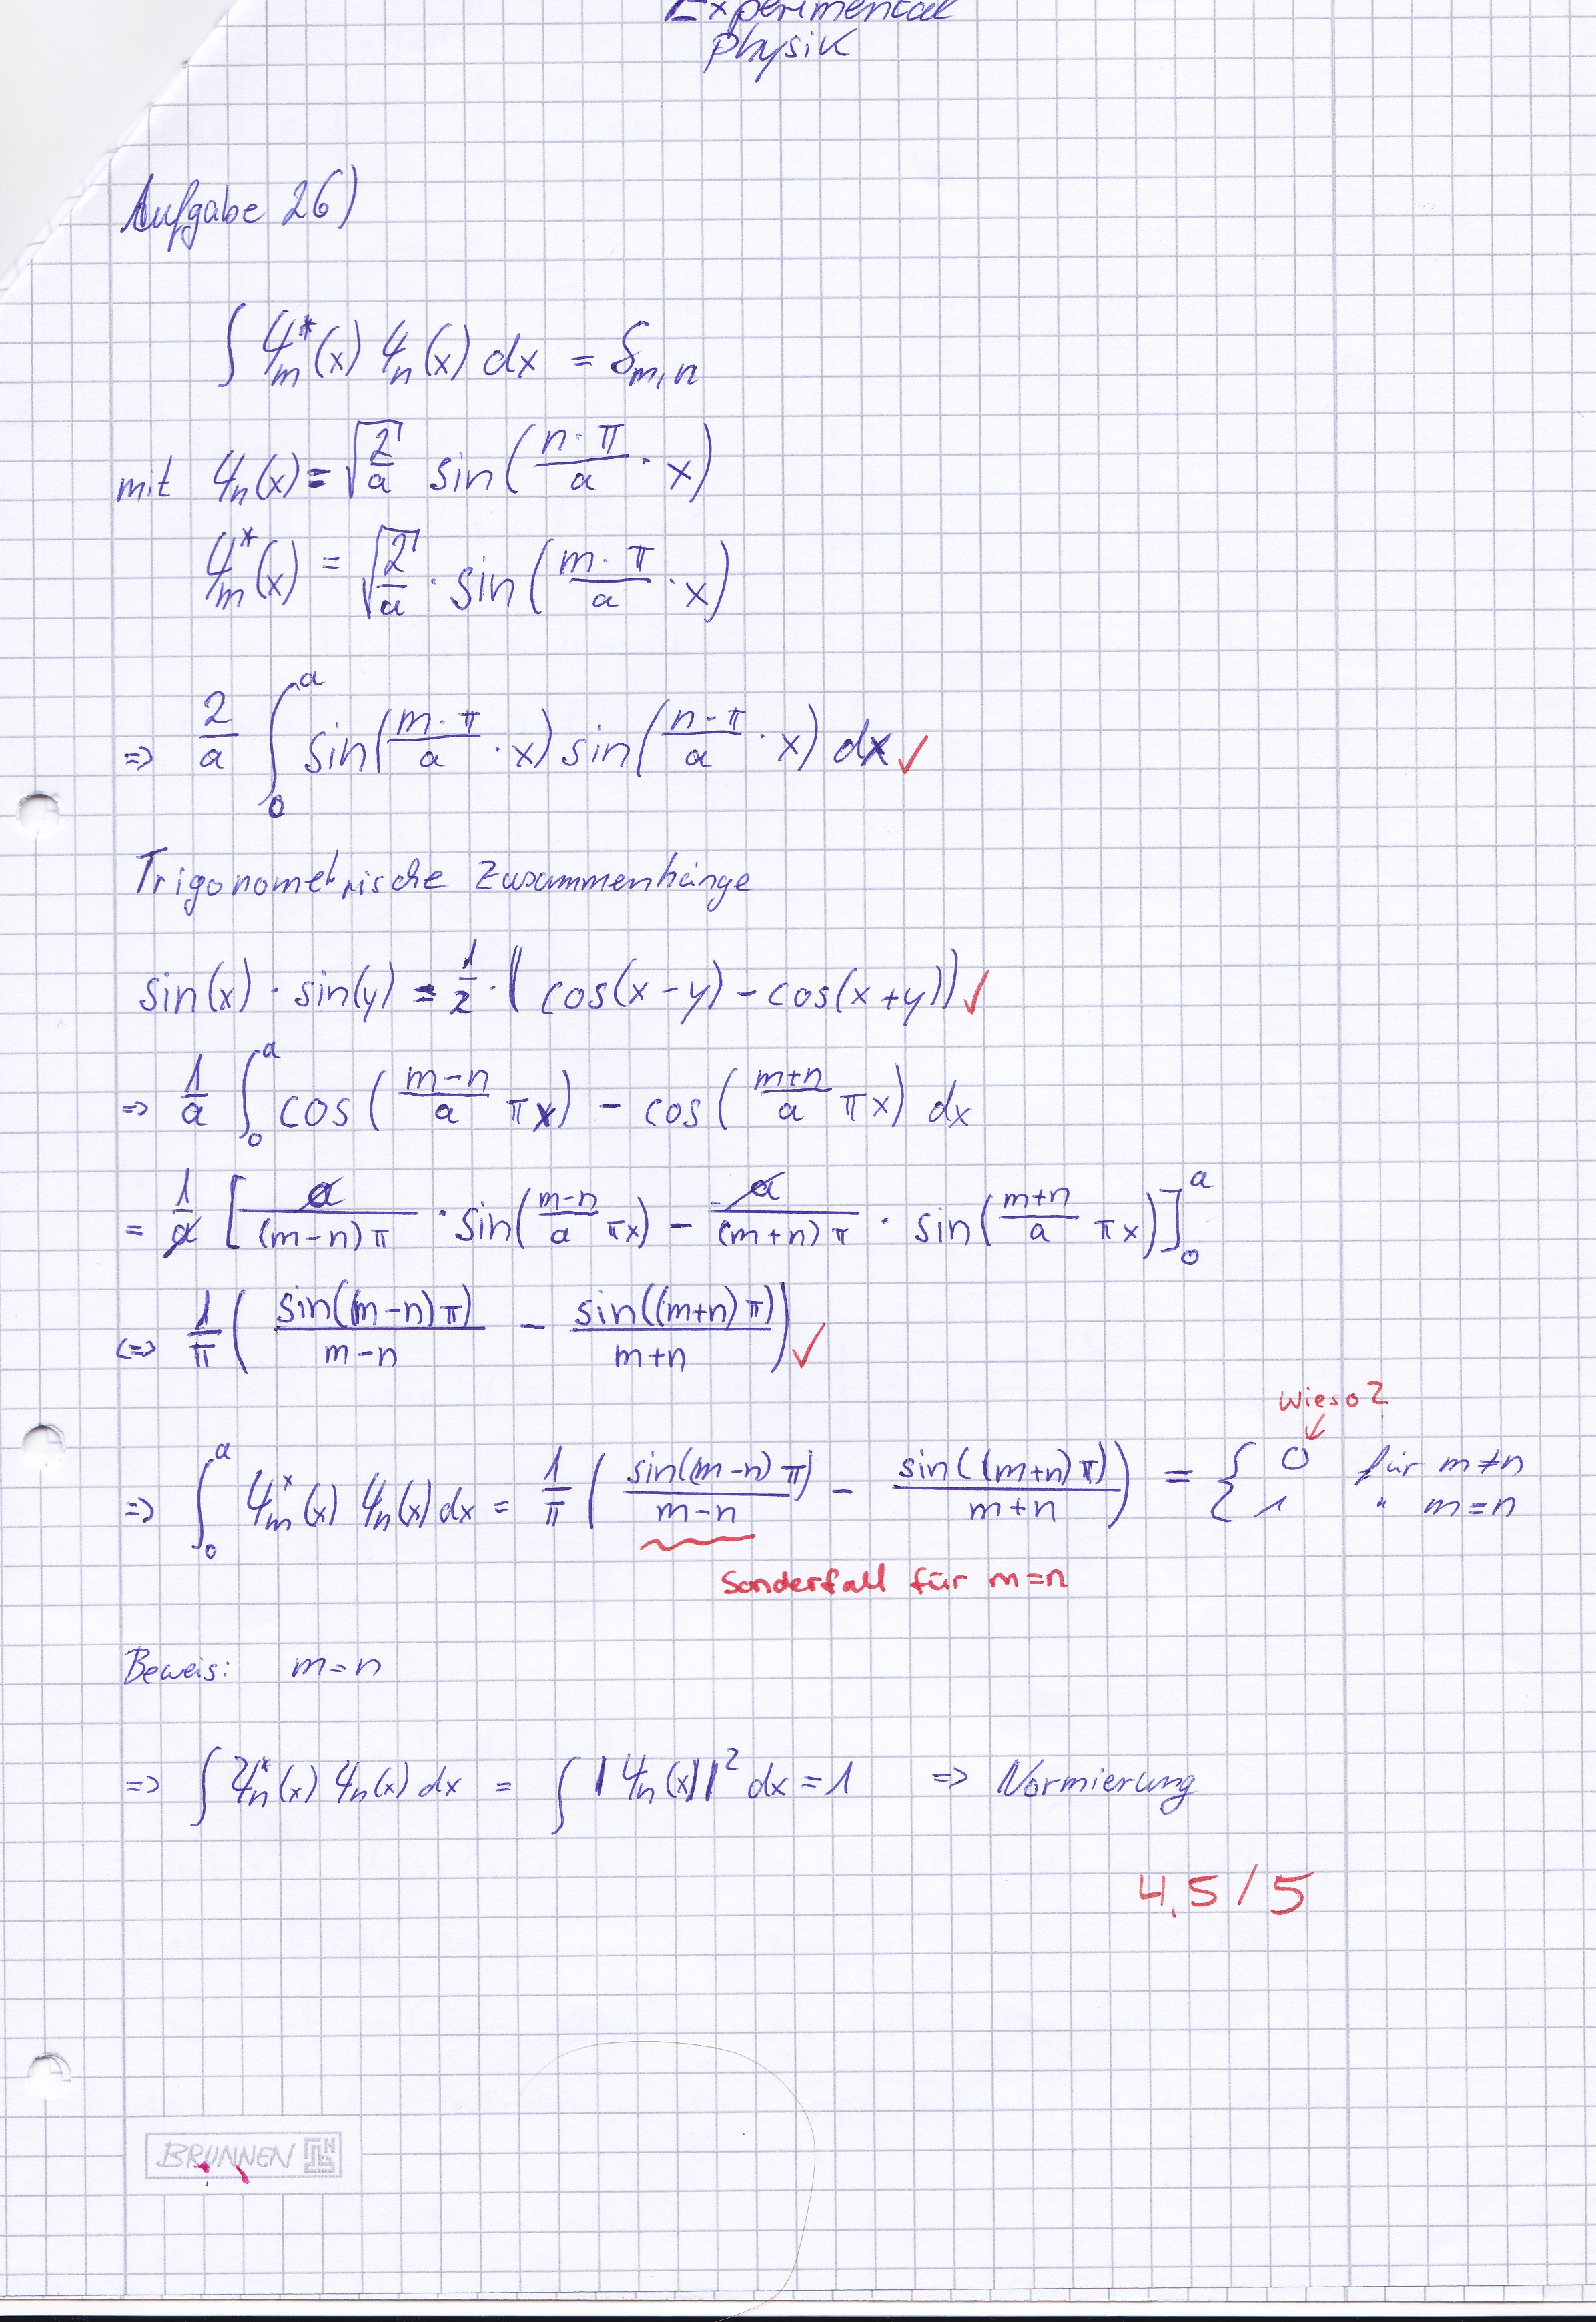 Experimental
physik
Aufgabe 26)
∫ Ψ*ₘ(x) Ψₙ(x) dx = δₘ,ₙ
mit Ψₙ(x) = √(2/a) sin(n·π/a · x)
Ψ*ₘ(x) = √(2/a) · sin(m·π/a · x)
=> 2/a ∫₀ᵃ sin(m·π/a · x) sin(n·π/a · x) dx ✓
Trigonometrische Zusammenhänge
sin(x) · sin(y) = 1/2 · (cos(x-y) - cos(x+y)) ✓
=> 1/a ∫₀ᵃ cos((m-n)/a πx) - cos((m+n)/a πx) dx
= 1/a [a/((m-n)π) · sin((m-n)/a πx) - a/((m+n)π) · sin((m+n)/a πx)]₀ᵃ
<=> 1/π (sin((m-n)π)/(m-n) - sin((m+n)π)/(m+n)) ✓
Wieso?
=> ∫₀ᵃ Ψ*ₘ(x) Ψₙ(x) dx = 1/π (sin((m-n)π)/(m-n) - sin((m+n)π)/(m+n)) = { 0 für m≠n
1 " m=n
Sonderfall für m=n
Beweis: m=n
=> ∫ Ψ*ₙ(x) Ψₙ(x) dx = ∫ |Ψₙ(x)|² dx = 1 => Normierung
4,5/5
BRUNNEN